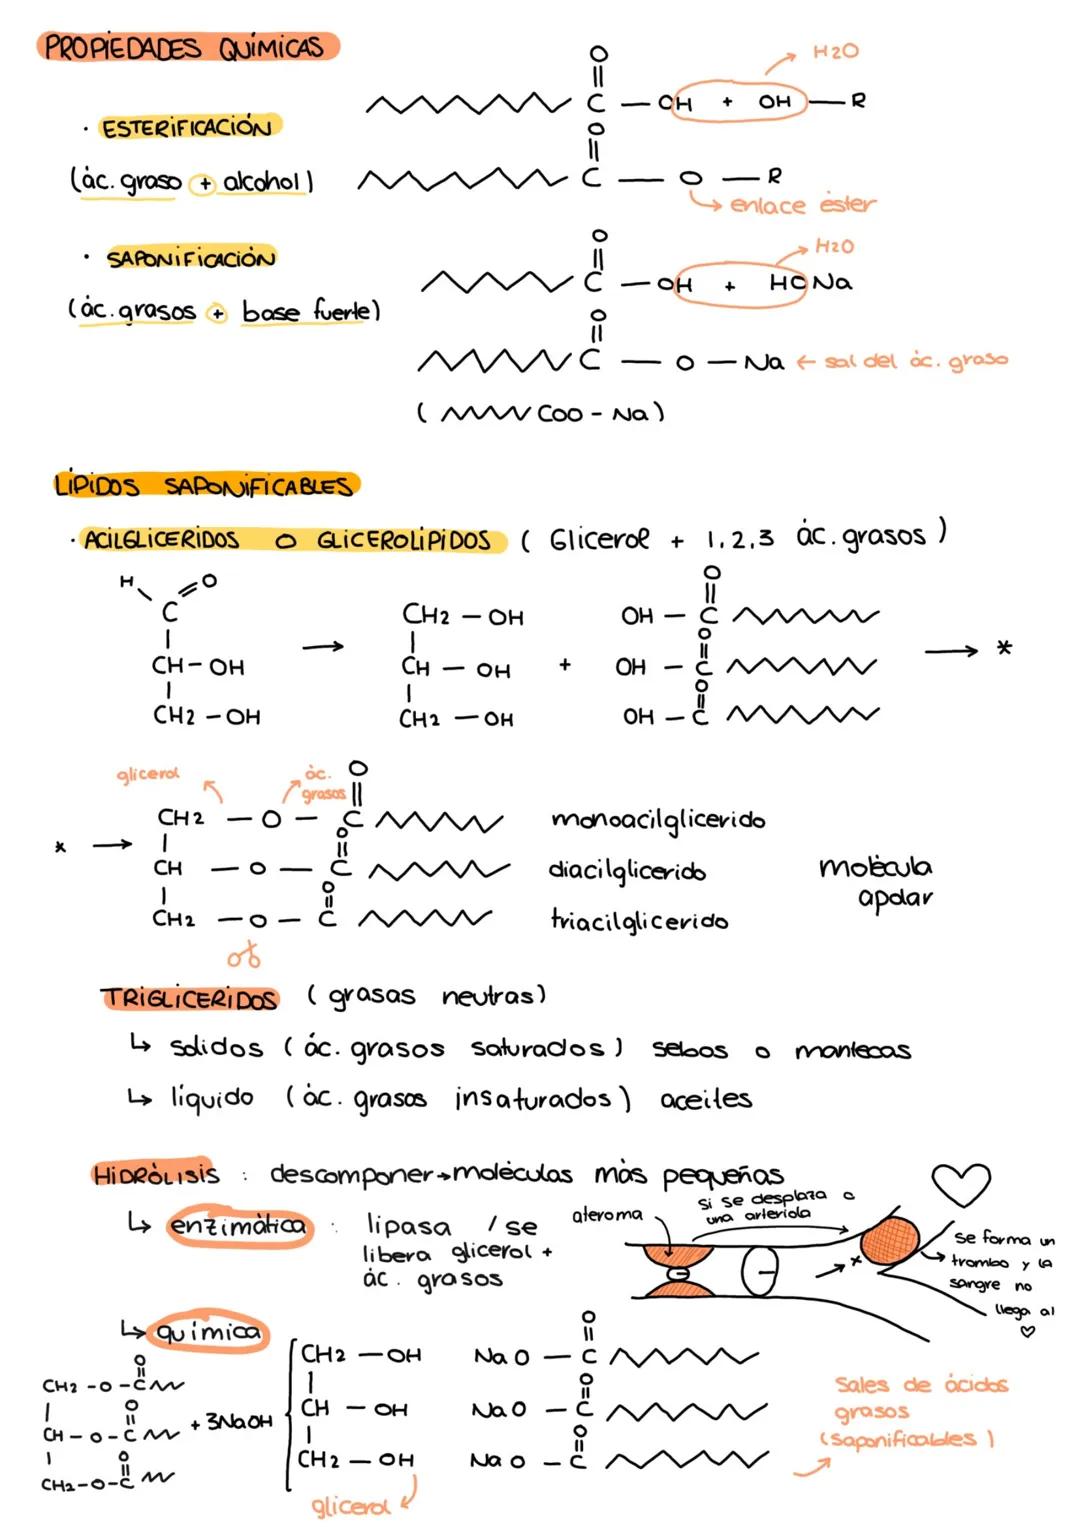 PROPIEDADES QUÍMICAS
H2O
O
C — OH + OH — R
· ESTERIFICACIÓN
(ác. graso + alcohol)
O
C — O — R
enlace éster
· SAPONIFICACIÓN
H2O
O
C — OH + HONa
(ác. grasos + base fuerte)
O
C — O — Na ← sal del ác. graso
( COO - Na)
LÍPIDOS SAPONIFICABLES
· ACILGLICERIDOS O GLICEROLÍPIDOS ( Glicerol + 1,2,3 ác. grasos )
H O
C
CH - OH
CH2 - OH
→
CH2 - OH
CH - OH
CH2 - OH
+
O
OH - C
O
OH - C
O
OH - C
→ *
glicerol
ác. grasos
* →
O
CH2 - O - C monoacilglicerido
O
CH - O - C diacilglicerido
O
CH2 - O - C triacilglicerido
molécula
apolar
TRIGLICERIDOS ( grasas neutras)
↳ sólidos ( ác. grasos saturados) sebos o mantecas
↳ líquido (ác. grasos insaturados) aceites
HIDRÓLISIS : descomponer→moléculas más pequeñas
↳ enzimática : lipasa / se
libera glicerol +
ác. grasos
ateroma
si se desplaza a
una arteriola
*
se forma un
trombo y la
sangre no
llega al ♡
↳ química
O
CH2 - O - C
O
CH - O - C
O
CH2 - O - C
+ 3NaOH
CH2 - OH
CH - OH
CH2 - OH
glicerol
O
NaO - C
O
NaO - C
O
NaO - C
Sales de ácidos
grasos
(saponificables)